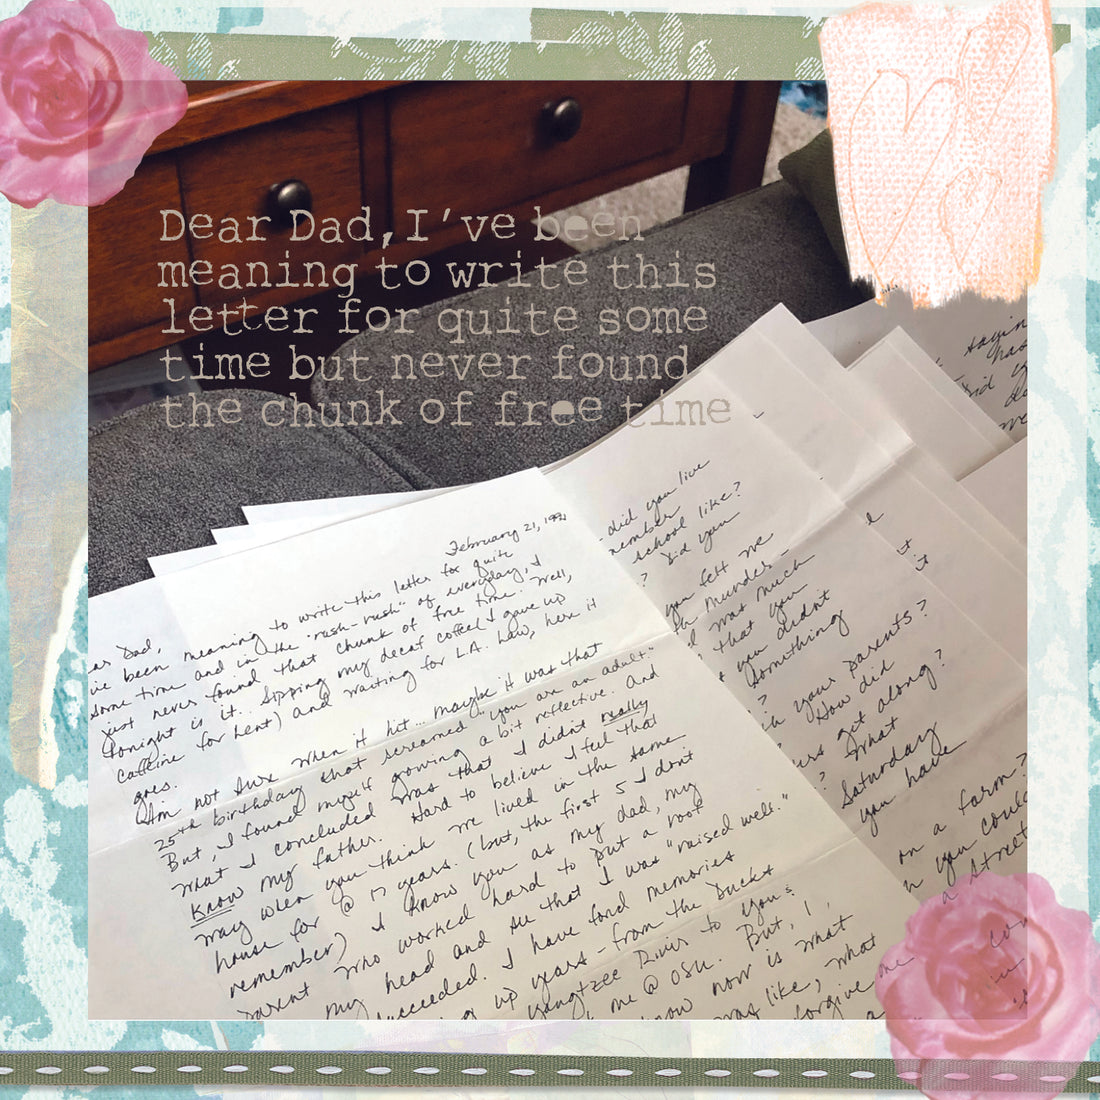 Dear Dad, I've been
meaning to write this
letter for quite some
time but never found
the chunk of free time
February 21, 199
ear Dad,
I've been meaning to write this letter for quite
some time and in the "rush-rush" of everyday, I
just never found that chunk of free time. Well,
tonight is it.. Sipping my decaf coffee (I gave up
caffeine for Lent) and waiting for LA. Law, here it
goes.
Am not sure when it hit... maybe it was that
25th birthday that screamed "you are an adult."
But, I found myself growing a bit reflective. And
what I concluded was that I didn't really
know my father. Hard to believe I feel that
way when you think we lived in the same
house for @ 17 years. (but, the first 5 I don't
remember) I know you as my dad, my
parent who worked hard to put a roof
my head and see that I was "raised well."
succeeded. I have fond memories
up years - from the Ducks
Yangtzee River to you
me @ OSU. But, I
know now is what
was like, what
forgive
did you live
member
school like?
? Did you
you felt me
th murder-
d was much
that you
you didn't
something
?
ch your parents?
How did
urs get along?
? What
Saturday
you have
on a farm?
n you could
a street
sayin
has
id y
me
d
it
it
me
con